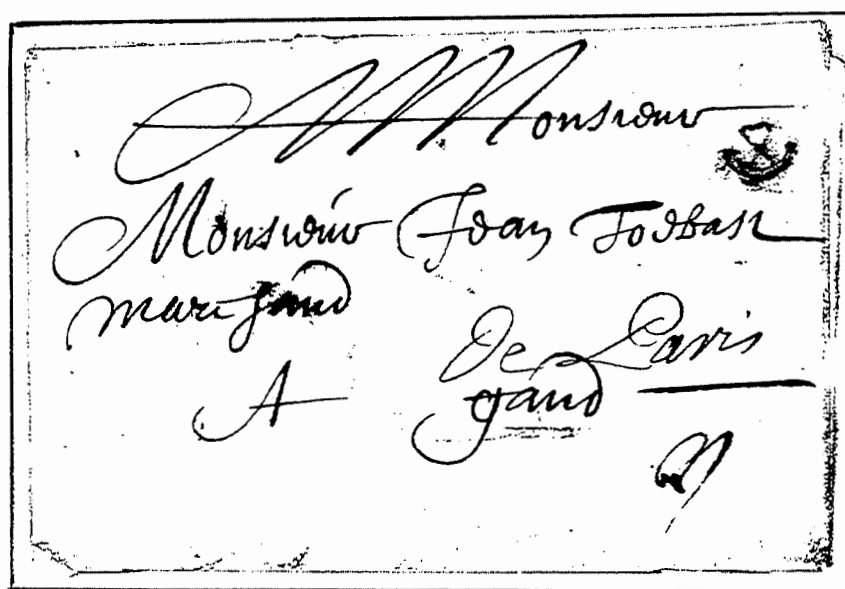 Monsieur
Monsieur Jean Jodbast
marchand
de Paris
A gand